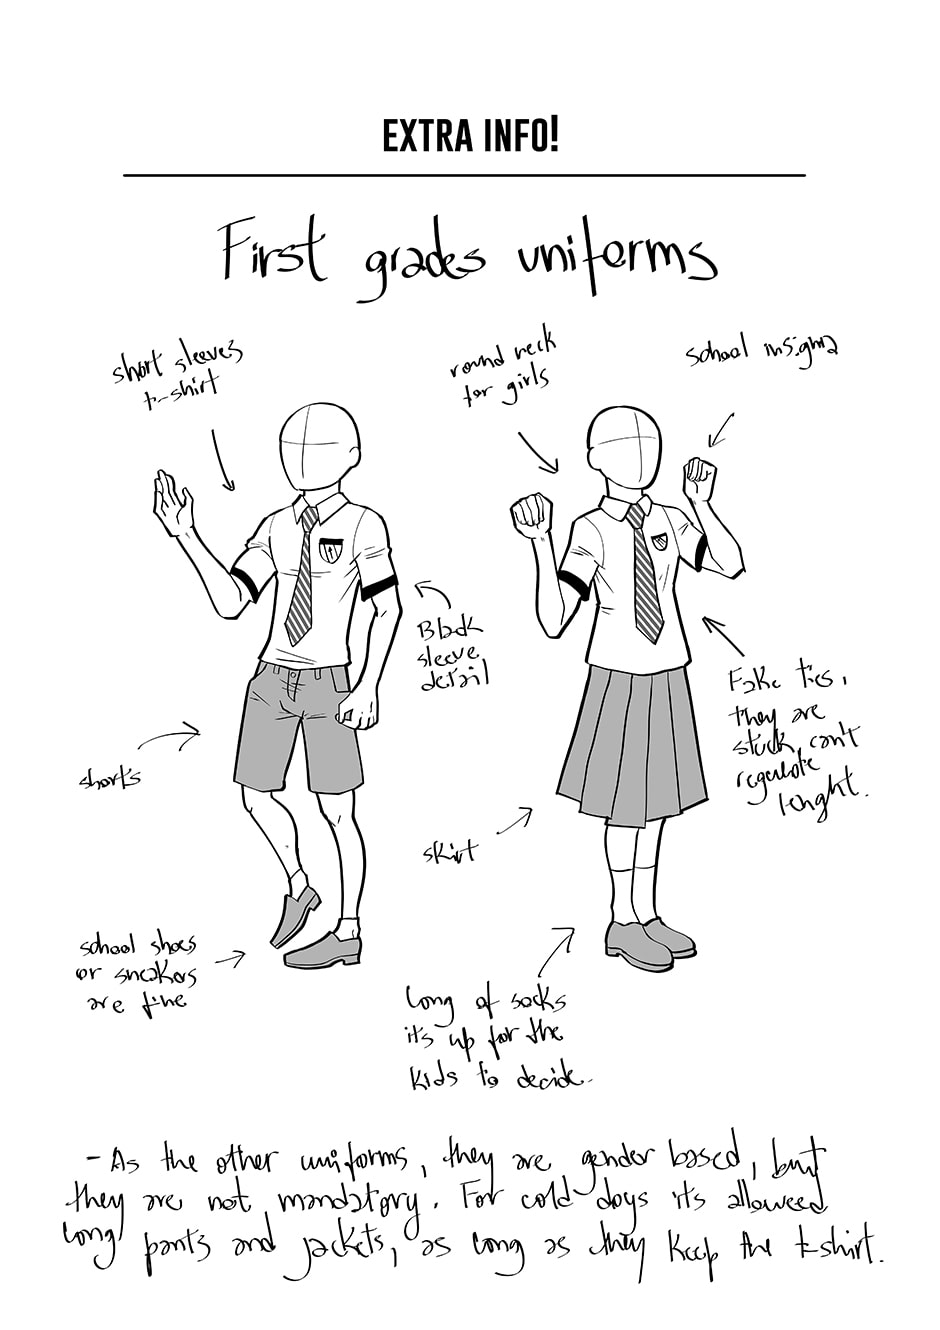 EXTRA INFO!
First grades uniforms
short sleeves
t-shirt
round neck
for girls
school insigna
Black
sleeve
detail
Fake ties,
they are
stuck, can't
regulate
lenght.
shorts
skirt
school shoes
or sneakers
are fine
long of socks
it's up for the
kids to decide.
- As the other uniforms, they are gender based, but
they are not mandatory. For cold days it's alloweed
long pants and jackets, as long as they keep the t-shirt.